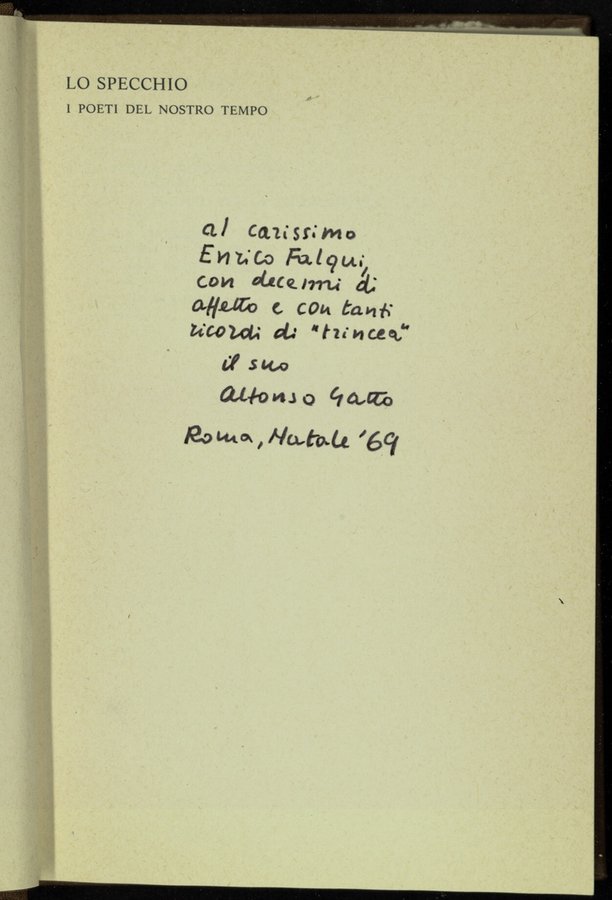 LO SPECCHIO
I POETI DEL NOSTRO TEMPO
al carissimo
Enrico Falqui,
con decenni di
affetto e con tanti
ricordi di "trincea"
il suo
Alfonso Gatto
Roma, Natale '69